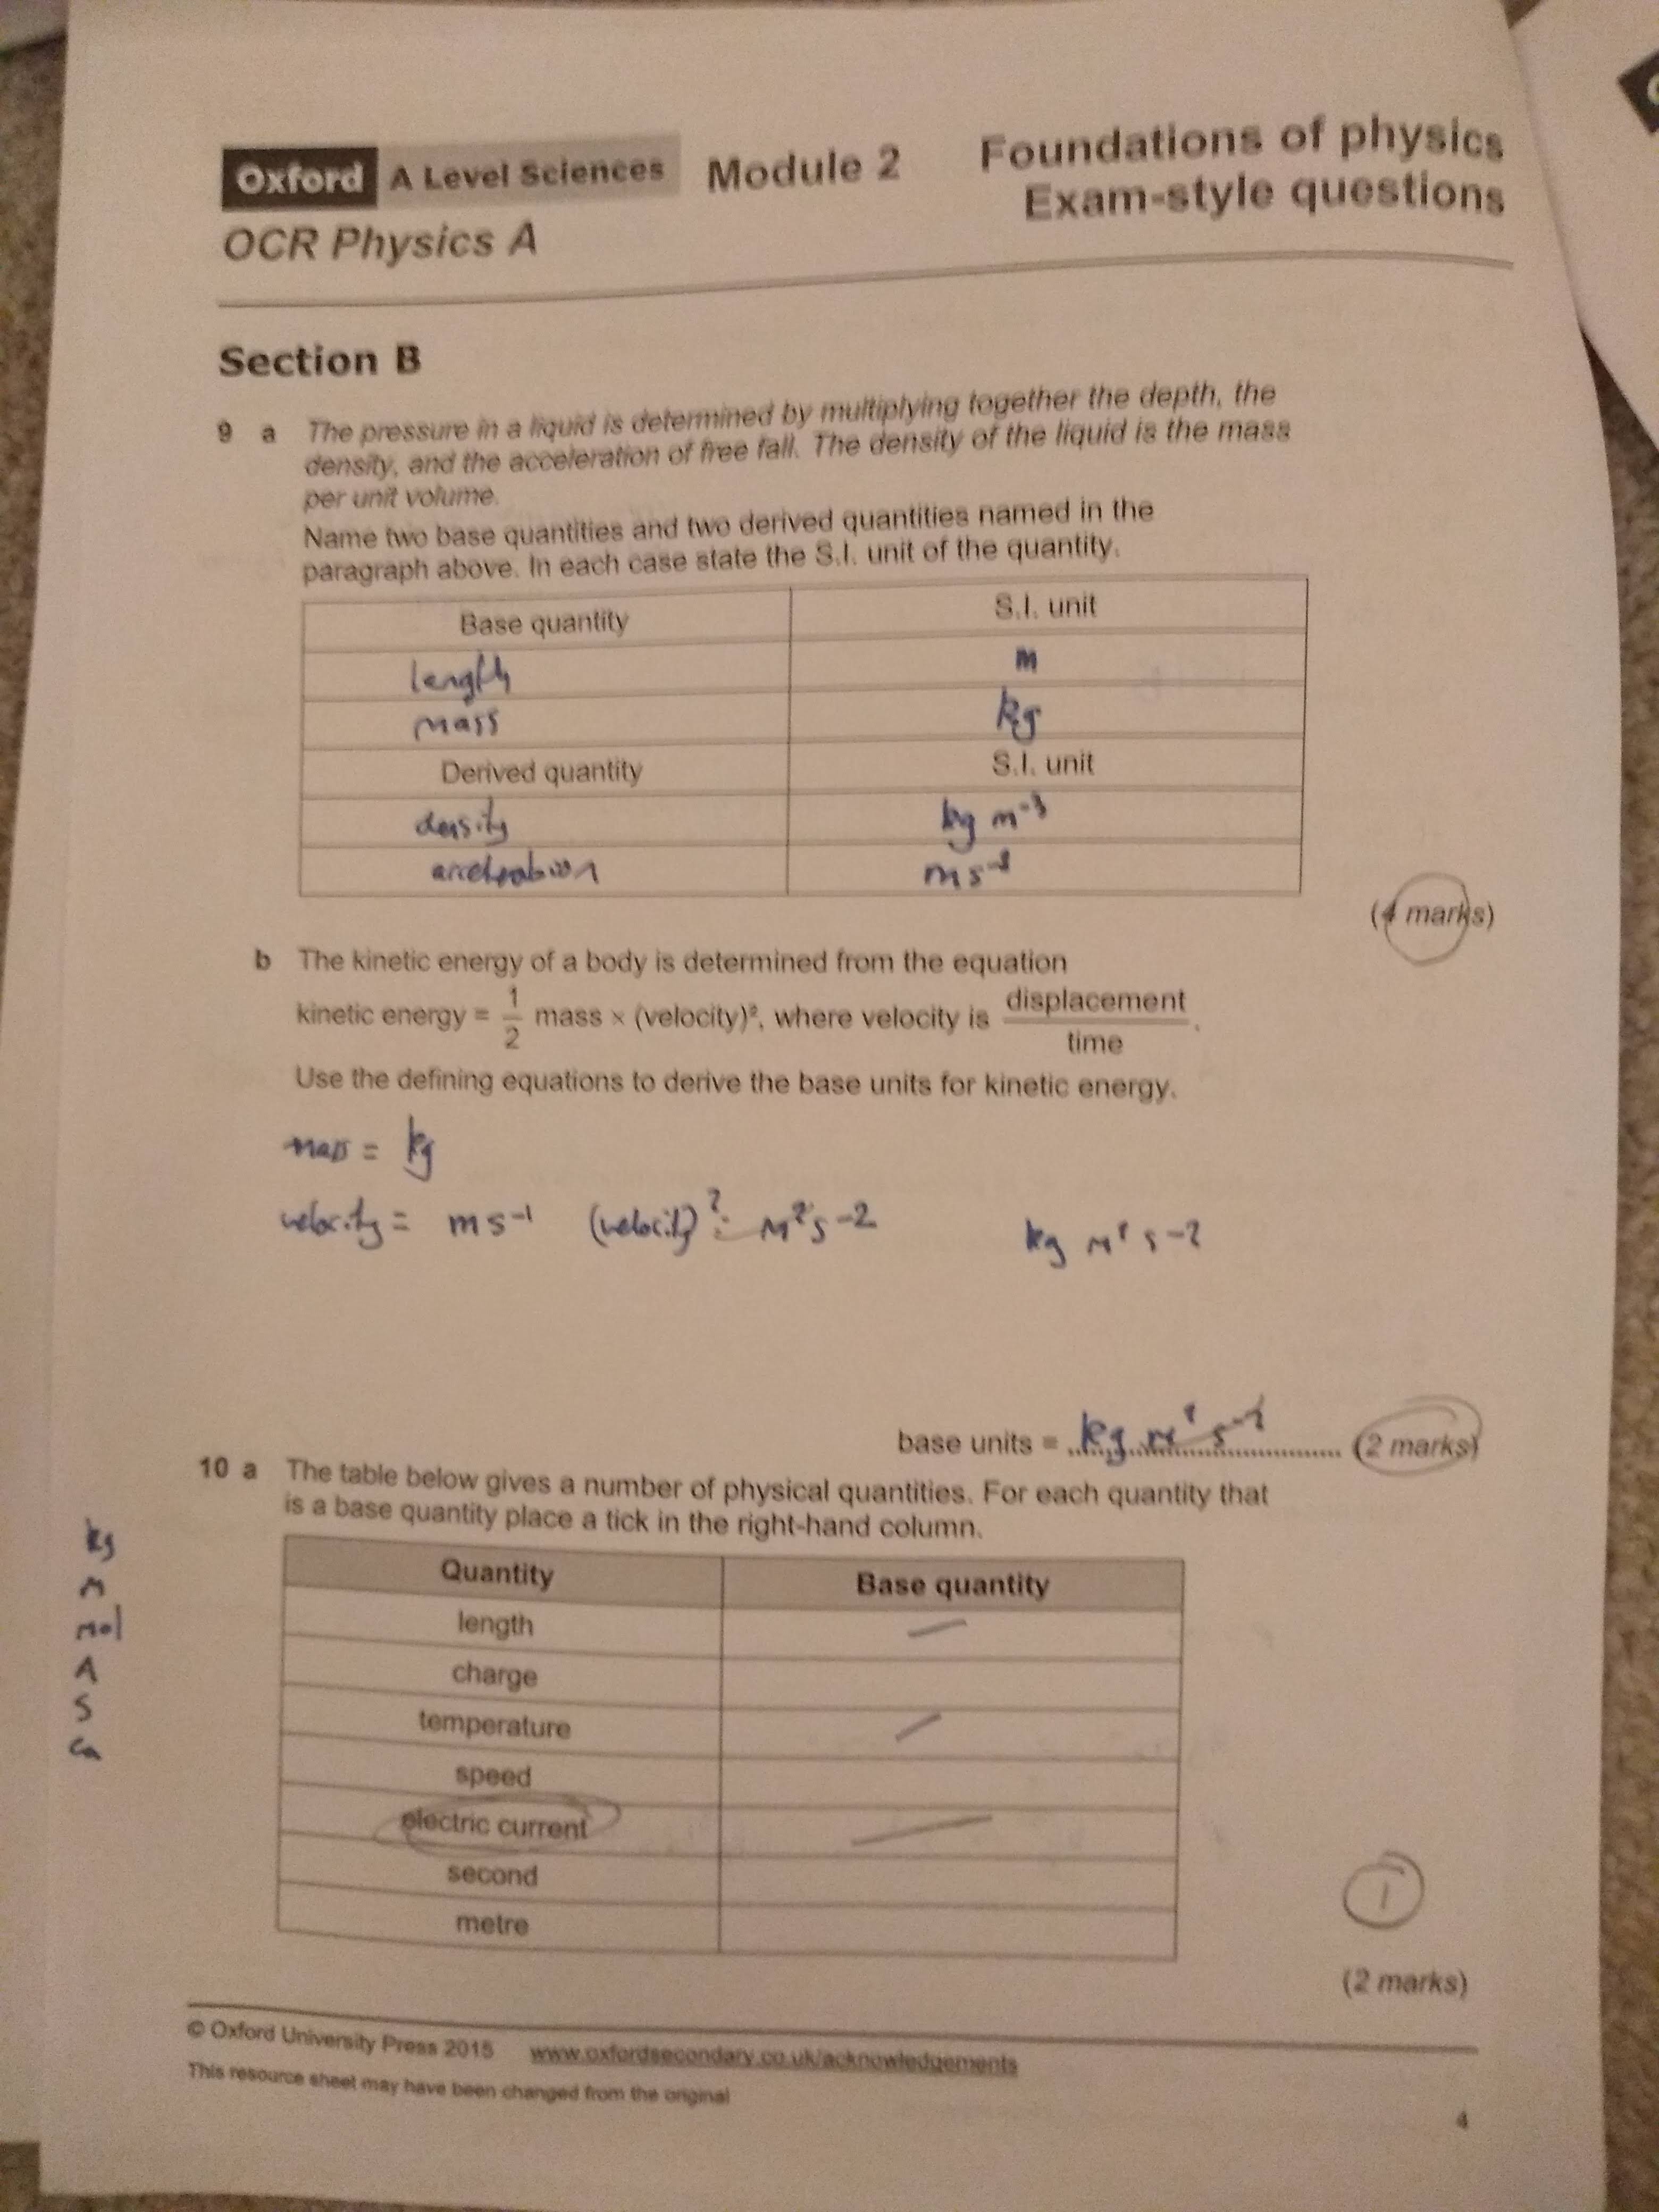 Oxford A Level Sciences Module 2 Foundations of physics
Exam-style questions
OCR Physics A
Section B
9 a The pressure in a liquid is determined by multiplying together the depth, the
density, and the acceleration of free fall. The density of the liquid is the mass
per unit volume.
Name two base quantities and two derived quantities named in the
paragraph above. In each case state the S.I. unit of the quantity.
Base quantity S.I. unit
length m
mass kg
Derived quantity S.I. unit
density kg m⁻³
ms
(4 marks)
b The kinetic energy of a body is determined from the equation
kinetic energy = 1/2 mass × (velocity)², where velocity is displacement/time.
Use the defining equations to derive the base units for kinetic energy.
mass = kg
velocity = ms⁻¹ (velocity)²: m²s-2 kg m² s-2
base units = kg m² s⁻² (2 marks)
10 a The table below gives a number of physical quantities. For each quantity that
is a base quantity place a tick in the right-hand column.
Quantity Base quantity
length
charge
temperature
speed
electric current
second
metre
kg
m
mol
A
S
1
(2 marks)
© Oxford University Press 2015 www.oxfordsecondary.co.uk/acknowledgements
This resource sheet may have been changed from the original
4